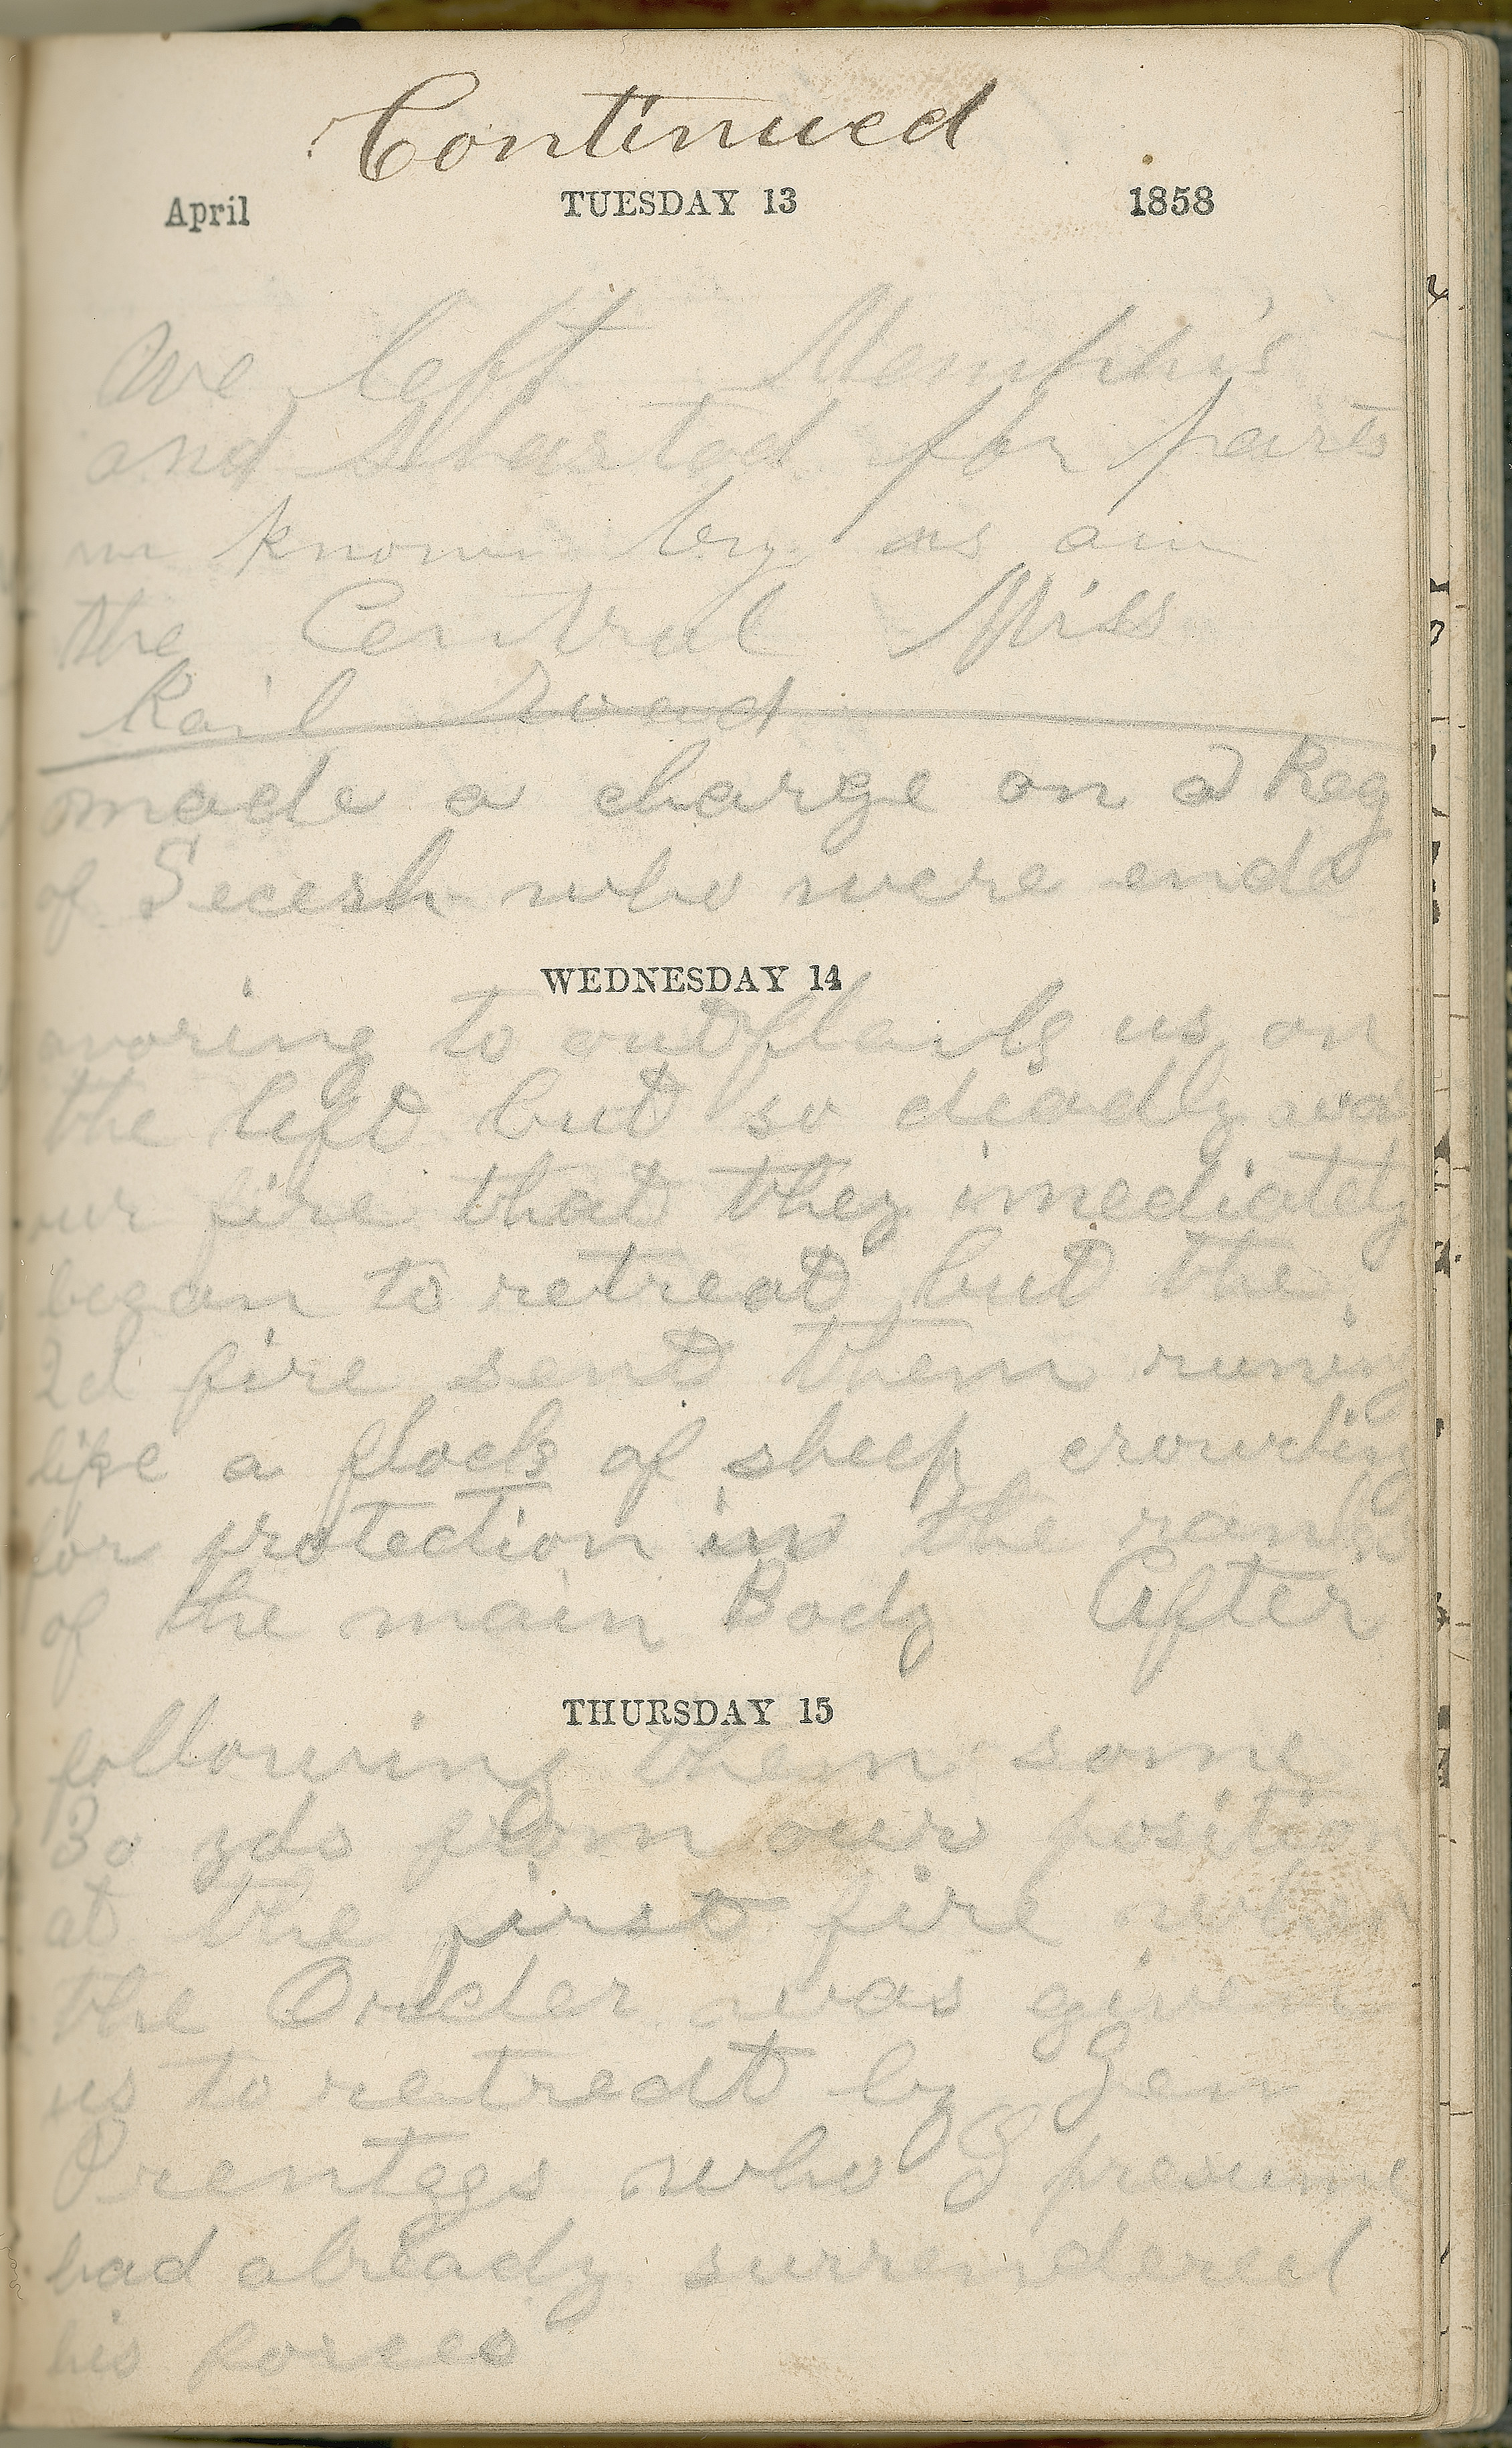 Continued
April TUESDAY 13 1858
We left Memphis
and Started for parts
un known by us
the Central Miss
Rail Road
made a charge on a Reg
of Secesh who were ende
WEDNESDAY 14
avoring to outflank us on
the left but so deadly was
our fire that they imediately
began to retreat but the
2d fire sent them runing
like a flock of sheep crowding
for protection in the ranks
of the main Body After
THURSDAY 15
following them some
30 yds from our position
at the first fire when
the Order was given
us to retreat by Gen
Prentegs who I presume
had already surrendered
his forces